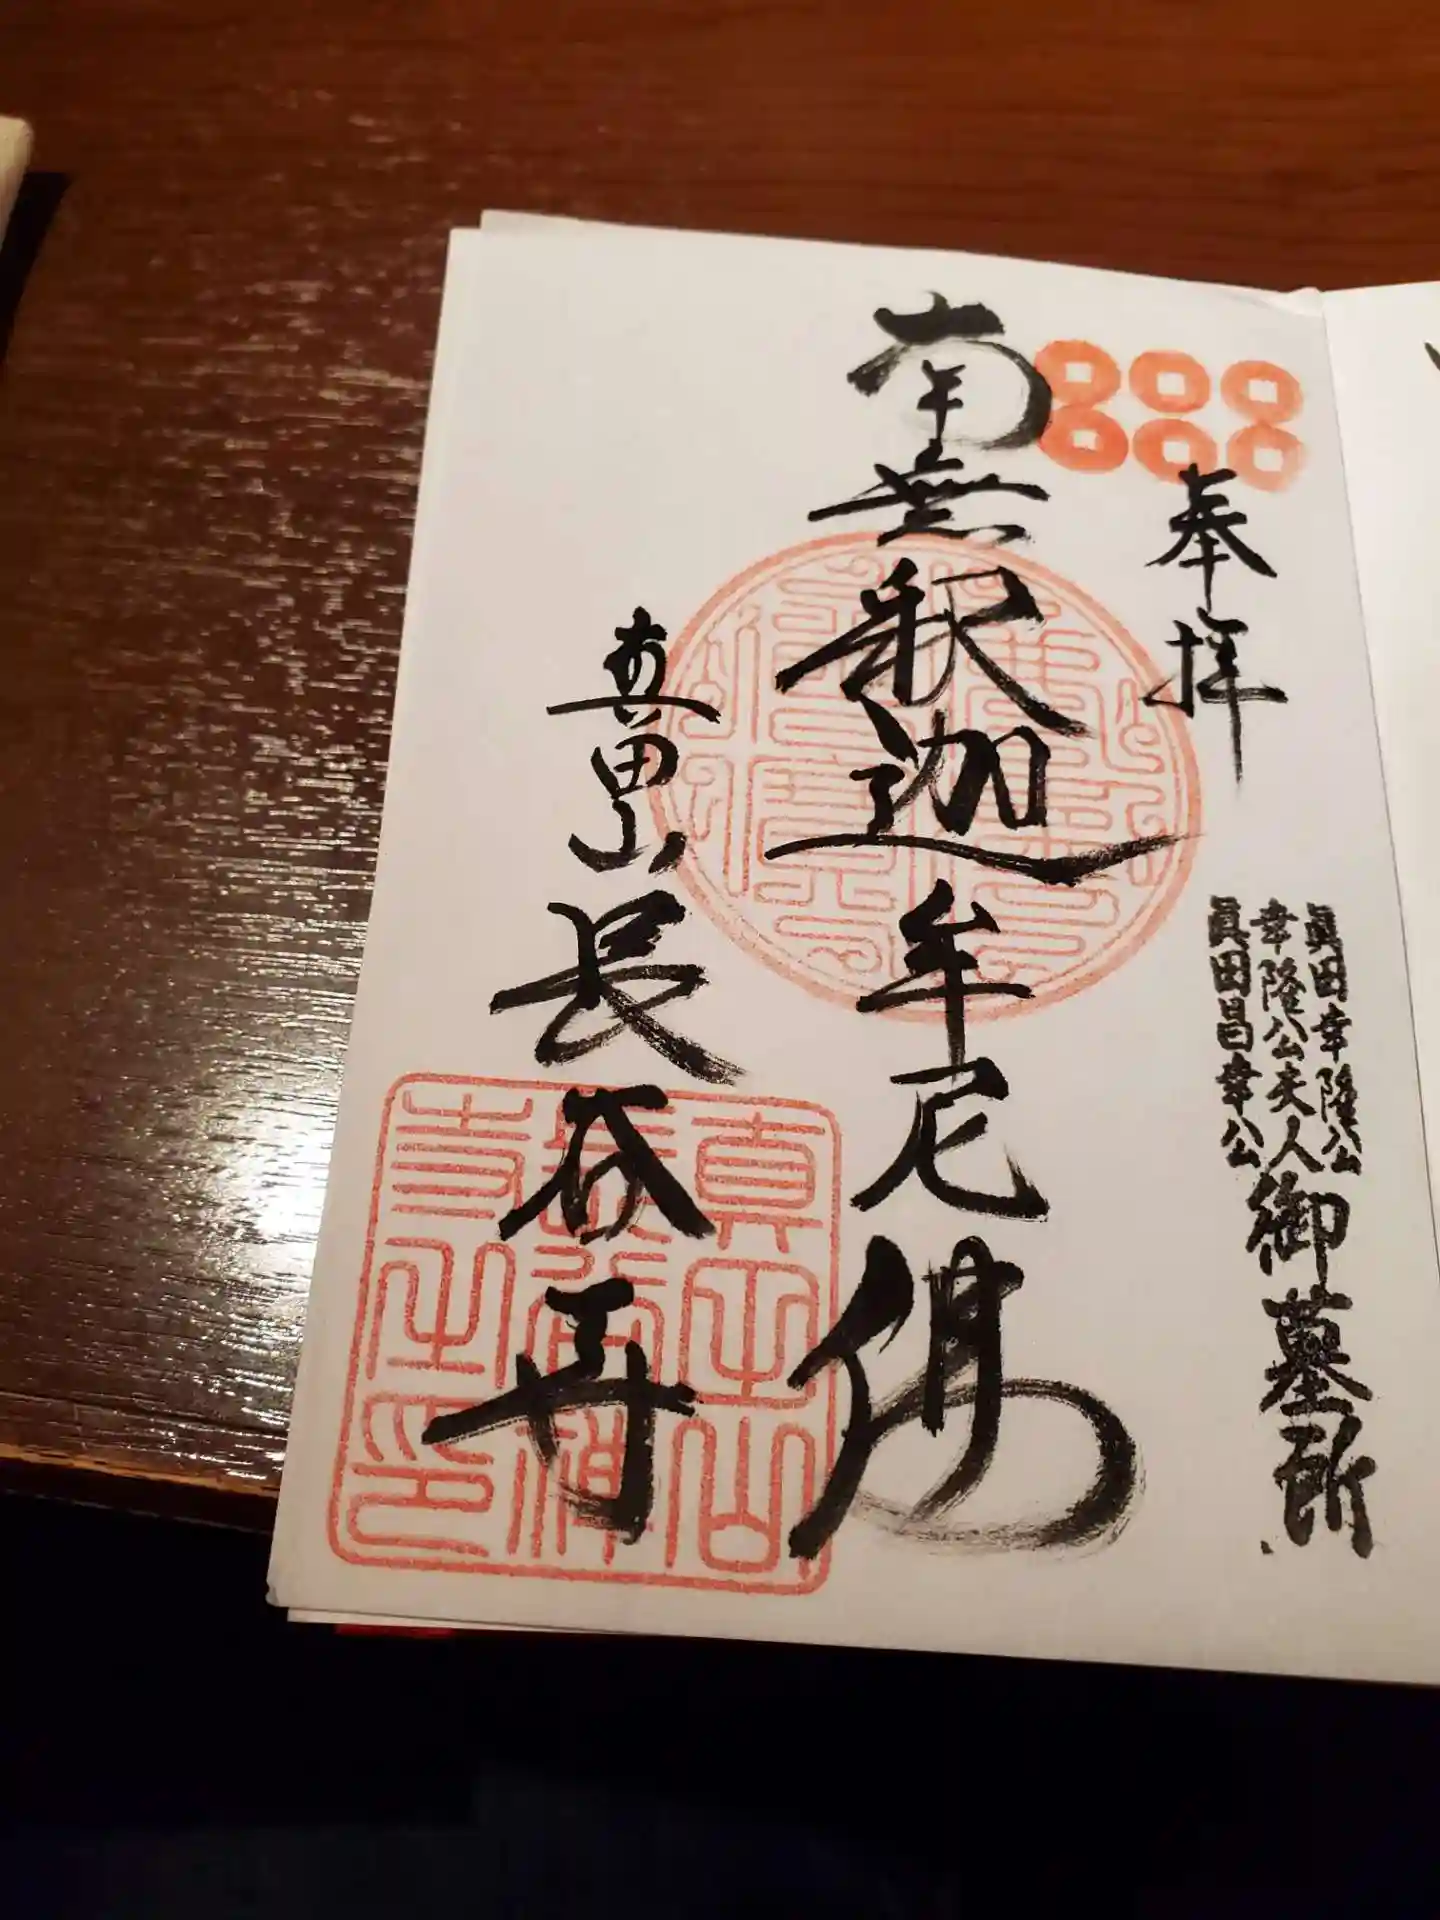 奉拝
眞田幸隆公
幸隆公夫人
眞田昌幸公
御墓所
南無釈迦牟尼佛
真田山
長谷寺
真田山
長谷禅
寺之印